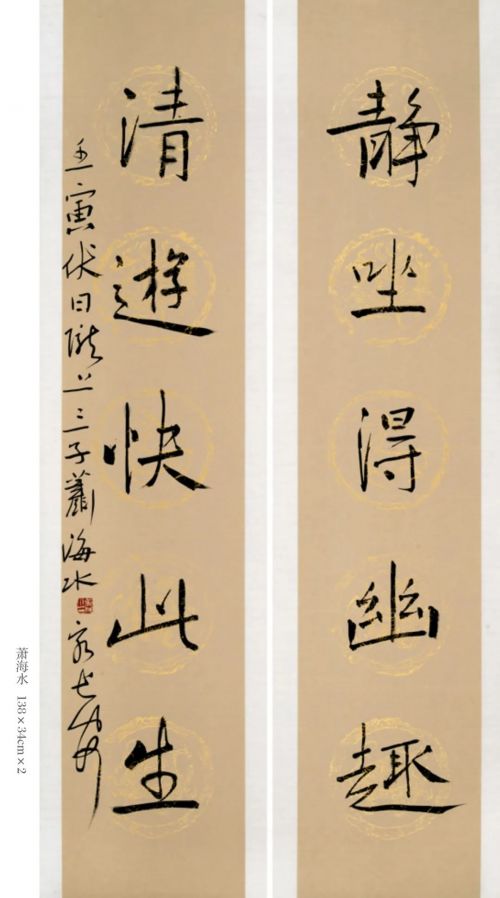 静坐得幽趣
清遊快此生
壬寅伏日陇上三子萧海水
萧海水 138×34cm×2